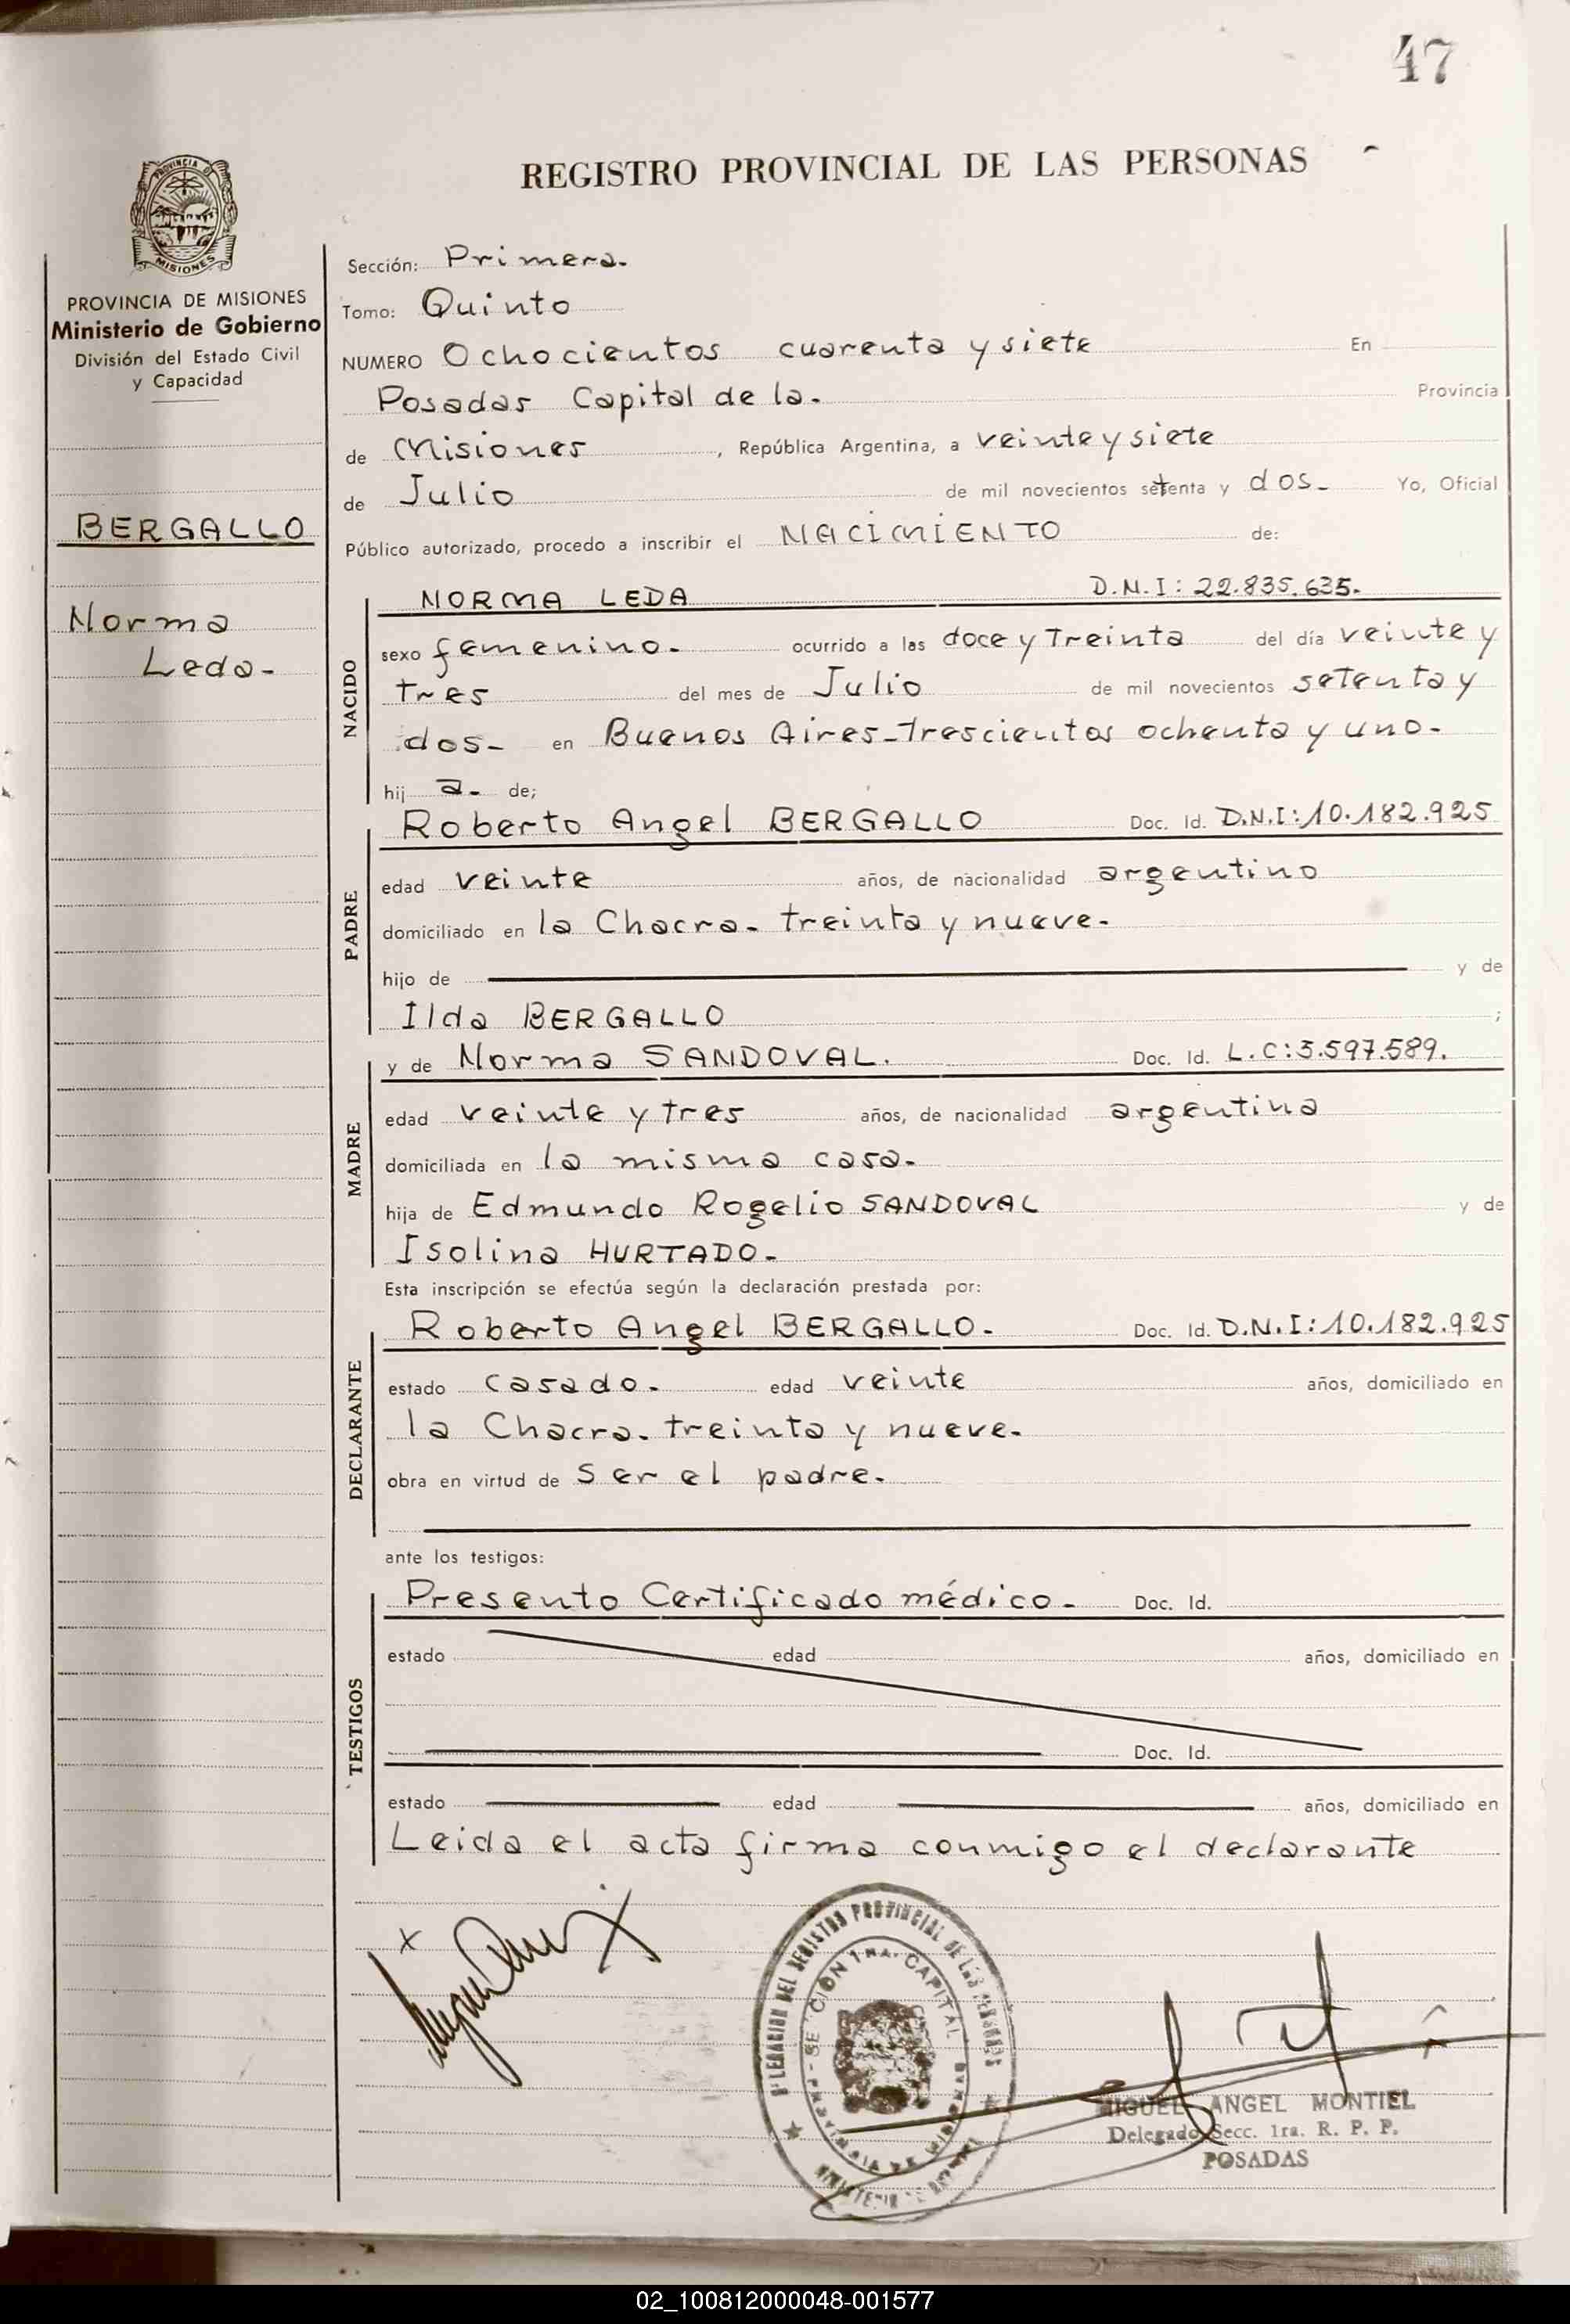 47
REGISTRO PROVINCIAL DE LAS PERSONAS
PROVINCIA
MISIONES
PROVINCIA DE MISIONES
Ministerio de Gobierno
División del Estado Civil
y Capacidad
BERGALLO
Norma
Leda-
Sección: Primera.
Tomo: Quinto
NUMERO Ochocientos cuarenta y siete En
Posadas Capital de la. Provincia
de Misiones, República Argentina, a veinte y siete
de Julio de mil novecientos setenta y dos- Yo, Oficial
Público autorizado, procedo a inscribir el NACIMIENTO de:
NACIDO
NORMA LEDA D.N.I: 22.835.635.
sexo femenino. ocurrido a las doce y Treinta del día veinte y
tres del mes de Julio de mil novecientos setenta y
dos- en Buenos Aires-Trescientos ochenta y uno-
hij a. de;
PADRE
Roberto Angel BERGALLO Doc. Id. D.N.I:10.182.925
edad veinte años, de nacionalidad argentino
domiciliado en la Chacra- treinta y nueve-
hijo de y de
Ilda BERGALLO ;
MADRE
y de Norma SANDOVAL. Doc. Id. L.C:5.597.589.
edad veinte y tres años, de nacionalidad argentina
domiciliada en la misma casa.
hija de Edmundo Rogelio SANDOVAL y de
Isolina HURTADO-
Esta inscripción se efectúa según la declaración prestada por:
DECLARANTE
Roberto Angel BERGALLO- Doc. Id. D.N.I:10.182.925
estado casado. edad veinte años, domiciliado en
la Chacra. treinta y nueve.
obra en virtud de Ser el padre.
ante los testigos:
TESTIGOS
Presento Certificado médico- Doc. Id.
estado edad años, domiciliado en
Doc. Id.
estado edad años, domiciliado en
Leida el acta firma conmigo el declarante
x
DELEGACION DEL REGISTRO PROVINCIAL DE LAS PERSONAS
SECCION 1RA. CAPITAL
PROVINCIA DE MISIONES
MINISTERIO DE GOBIERNO
MIGUEL ANGEL MONTIEL
Delegado Secc. 1ra. R. P. P.
POSADAS
02_100812000048-001577